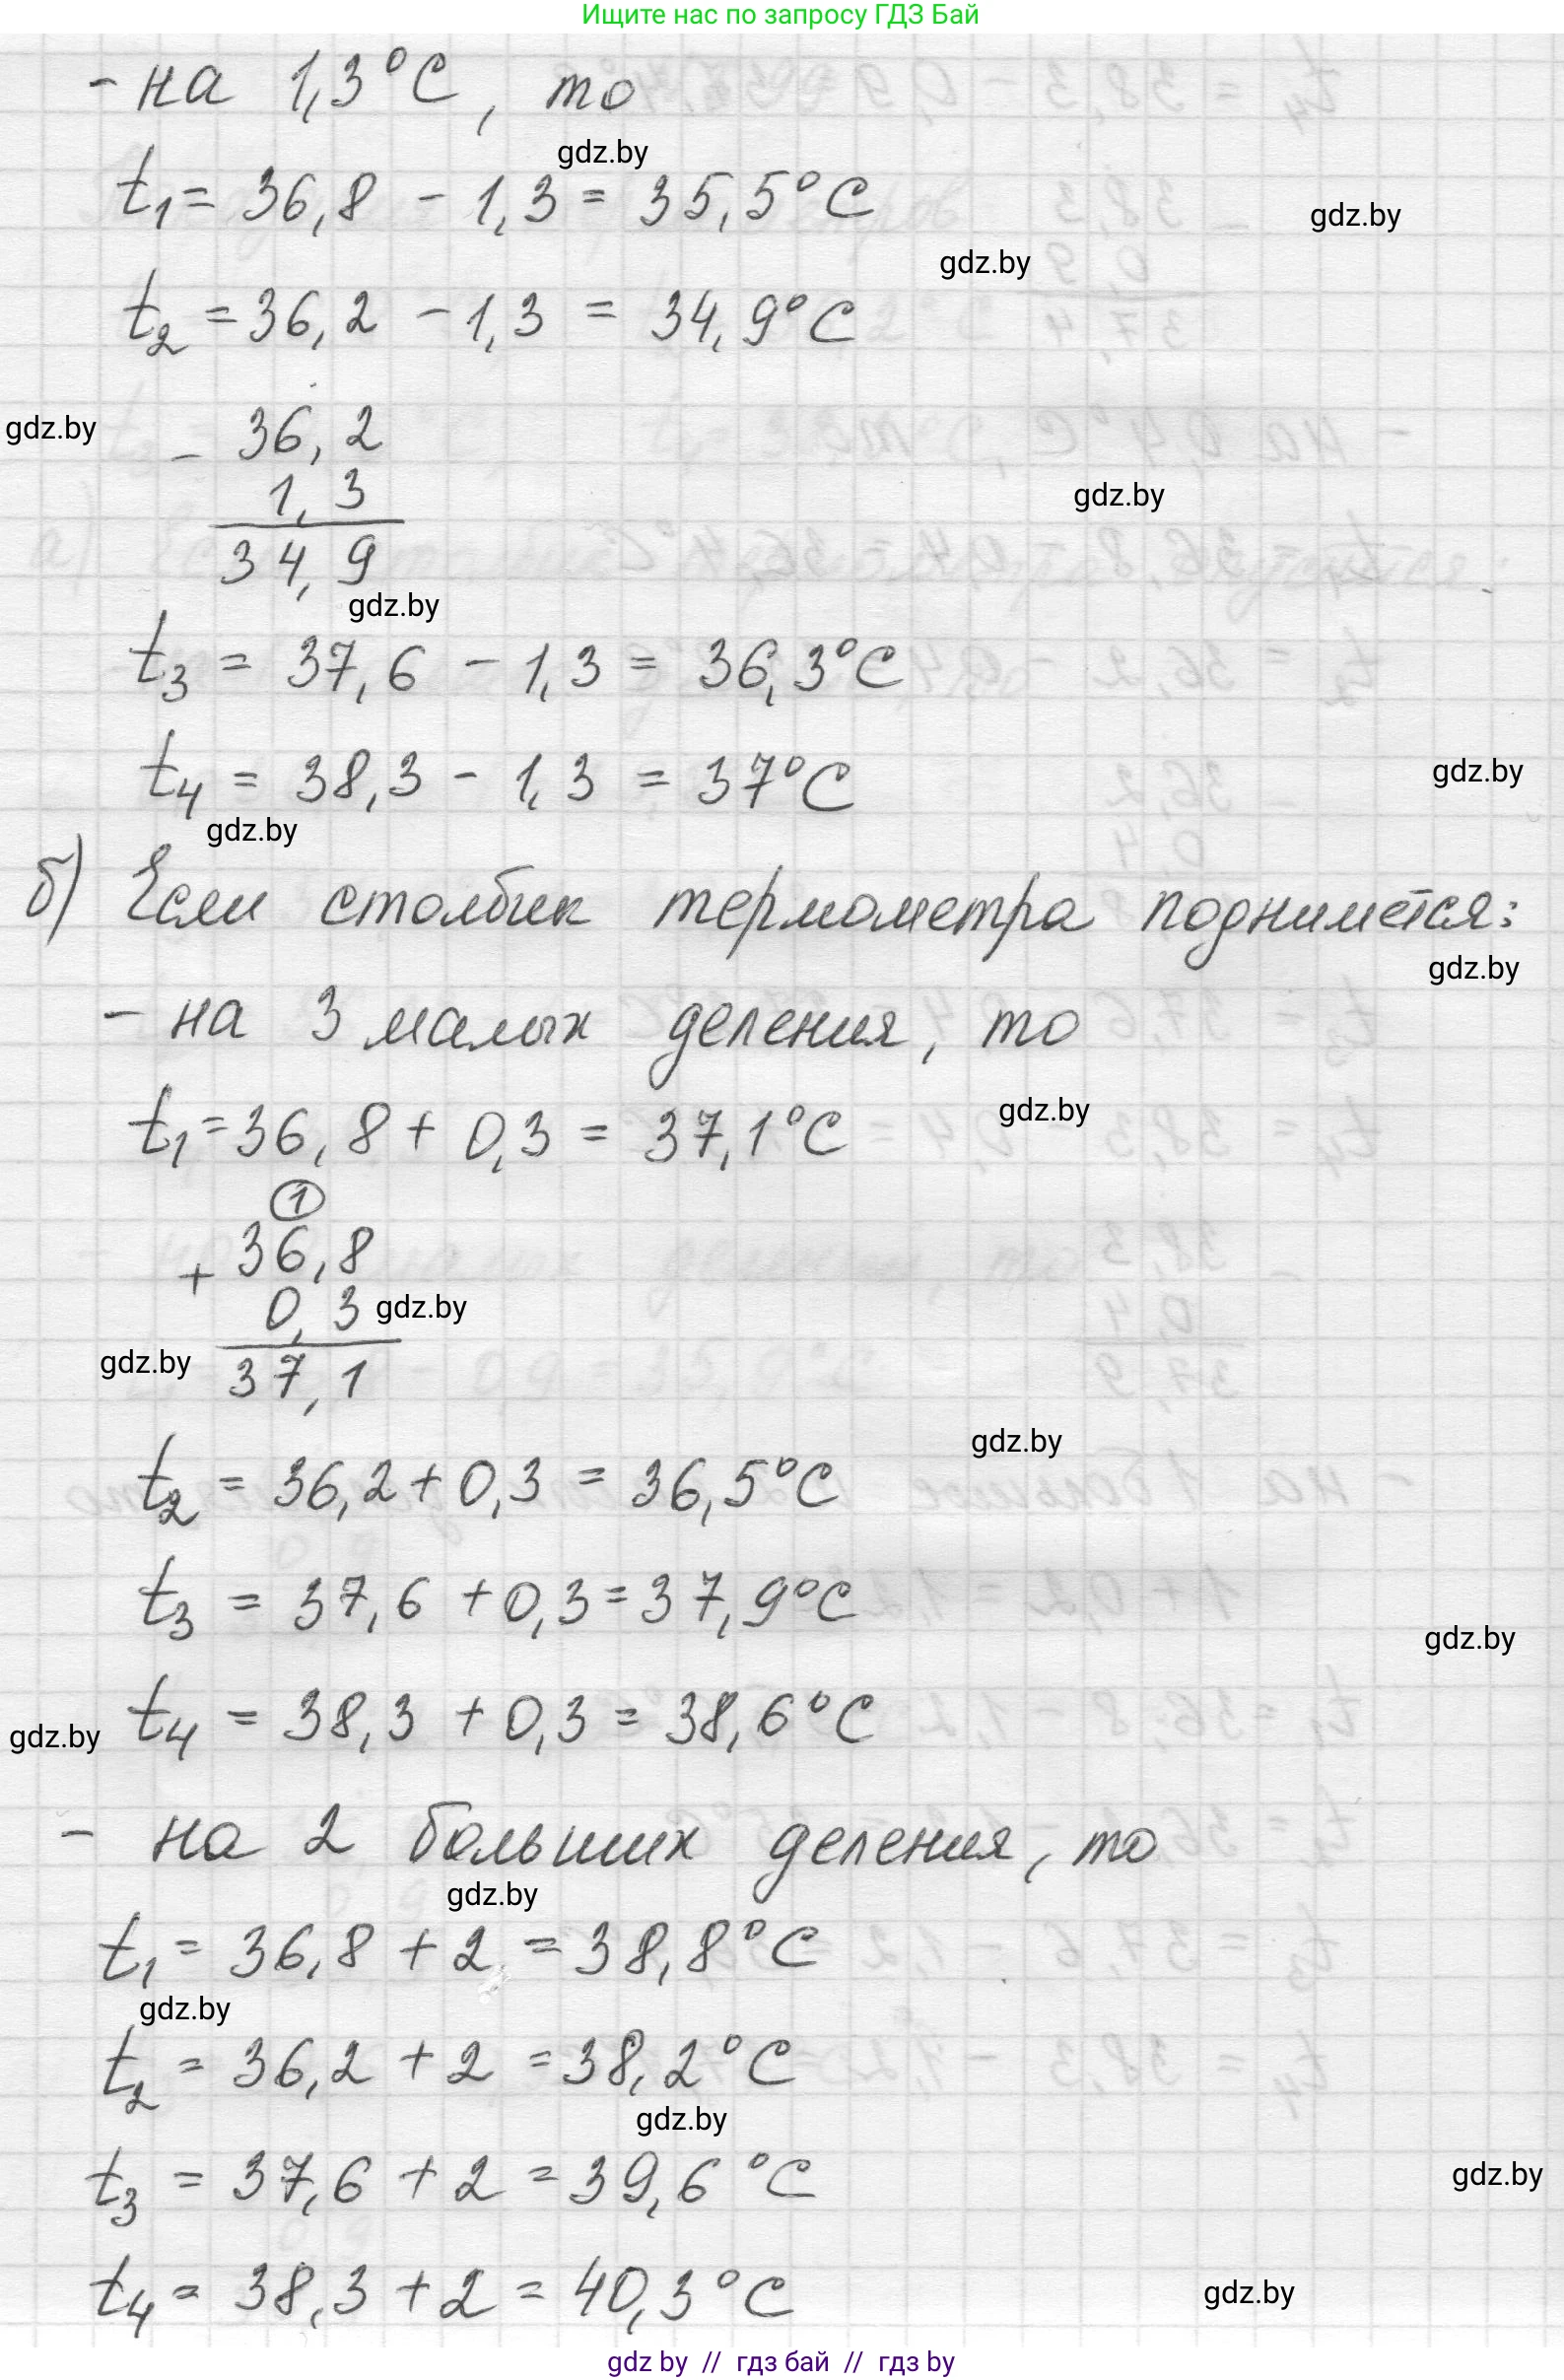 Ищите нас по запросу ГДЗ Бай
- на 1,3°С, то
gdz.by
t1 = 36,8 - 1,3 = 35,5°С
gdz.by
gdz.by
t2 = 36,2 - 1,3 = 34,9°С
gdz.by
- 36,2
1,3
gdz.by
34,9
gdz.by
t3 = 37,6 - 1,3 = 36,3°С
t4 = 38,3 - 1,3 = 37°С
gdz.by
gdz.by
б) Если столбик термометра поднимется:
gdz.by
- на 3 малых деления, то
t1 = 36,8 + 0,3 = 37,1°С
gdz.by
1
+ 36,8
0,3
gdz.by
gdz.by
37,1
gdz.by
t2 = 36,2 + 0,3 = 36,5°С
t3 = 37,6 + 0,3 = 37,9°С
gdz.by
t4 = 38,3 + 0,3 = 38,6°С
gdz.by
- на 2 больших деления, то
gdz.by
t1 = 36,8 + 2 = 38,8°С
gdz.by
t2 = 36,2 + 2 = 38,2°С
gdz.by
t3 = 37,6 + 2 = 39,6°С
gdz.by
t4 = 38,3 + 2 = 40,3°С
gdz.by
gdz by // гдз бай // гдз by